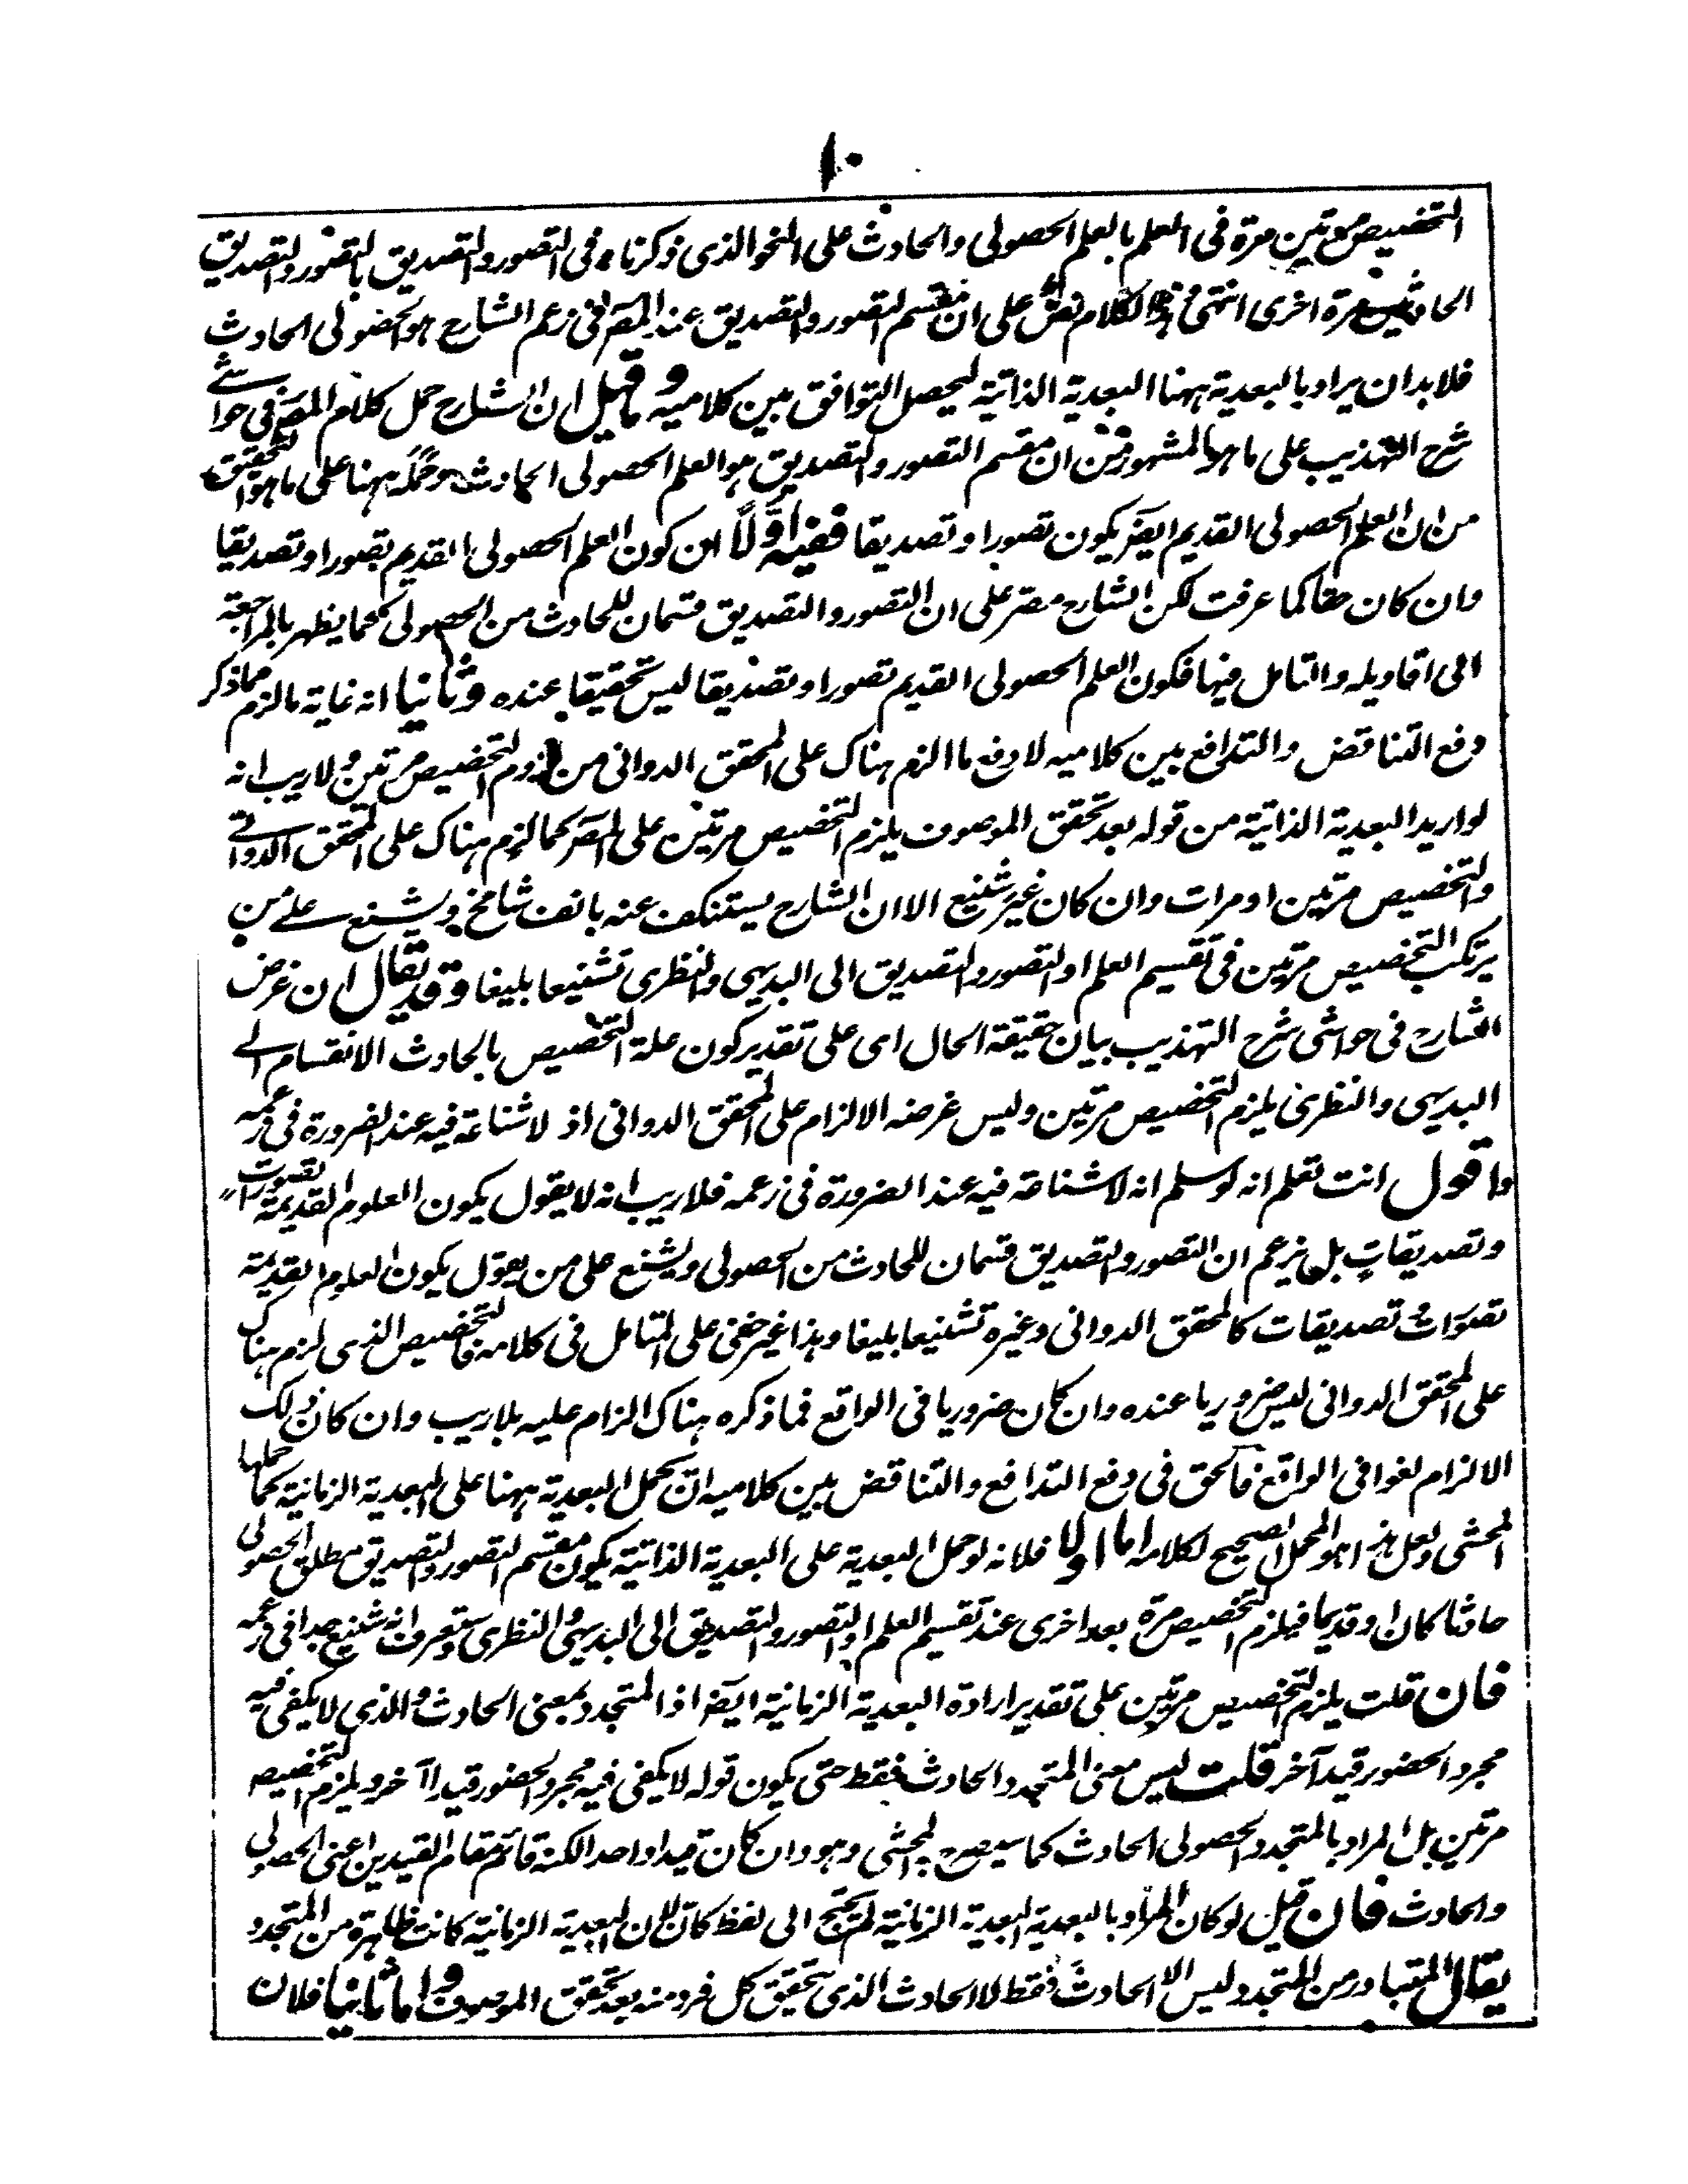 ١٠
التخصيص مرتين مرة فى العلم بالعلم الحصولى والحادث على النحو الذى ذكرناه فى التصور والتصديق بالتصور والتصديق
الحادثين مرة اخرى انتهى فهذا الكلام نص على ان مقسم التصور والتصديق عند المصر فى زعم الشارح هو الحصولى الحادث
فلابد ان يراد بالبعدية ههنا البعدية الذاتية ليحصل التوافق بين كلاميه وما قيل ان الشارح حمل كلام المصر فى حواشى
شرح التهذيب على ما هو المشهور من ان مقسم التصور والتصديق هو العلم الحصولى الحادث وحمله ههنا على ما هو التحقيق
من ان العلم الحصولى القديم ايضا يكون تصورا وتصديقا ففيه اولا ان كون العلم الحصولى القديم تصورا وتصديقا
وان كان حقا كما عرفت لكن الشارح مصر على ان التصور والتصديق قسمان للحادث من الحصولى كما يظهر بالمراجعة
الى اقاويله والتامل فيها فكون العلم الحصولى القديم تصورا وتصديقا ليس تحقيقا عنده وثانيا انه غاية ما لزم مما ذكر
دفع التناقض والتدافع بين كلاميه لا دفع ما الزم هناك على المحقق الدوانى من لزوم التخصيص مرتين ولا ريب انه
لو اريد البعدية الذاتية من قوله بعد تحقق الموصوف يلزم التخصيص مرتين على المصر كما لزم هناك على المحقق الدوانى
والتخصيص مرتين او مرات وان كان غير شنيع الا ان الشارح يستنكف عنه بانف شامخ ويشنع على من
يرتكب التخصيص مرتين فى تقسيم العلم او التصور والتصديق الى البديهى والنظرى تشنيعا بليغا وقد يقال ان غرض
الشارح فى حواشى شرح التهذيب بيان حقيقة الحال اى على تقدير كون علة التخصيص بالحادث الانقسام الى
البديهى والنظرى يلزم التخصيص مرتين وليس غرضه الالزام على المحقق الدوانى اذ لا شناعة فيه عند الضرورة فى زعمه
واقول انت تعلم انه لو سلم انه لا شناعة فيه عند الضرورة فى زعمه فلا ريب انه لا يقول بكون العلوم القديمة تصورات
وتصديقات بل يزعم ان التصور والتصديق قسمان للحادث من الحصولى ويشنع على من يقول بكون العلوم القديمة
تصورات وتصديقات كالمحقق الدوانى وغيره تشنيعا بليغا وهذا غير خفى على المتامل فى كلامه فالتخصيص الذى لزم هناك
على المحقق الدوانى ليس ضروريا عنده وان كان ضروريا فى الواقع فما ذكره هناك الزام عليه بلا ريب وان كان ذلك
الالزام لغوا فى الواقع فالحق فى دفع التدافع والتناقض بين كلاميه ان تحمل البعدية ههنا على البعدية الزمانية كما حملها
المحشى ولعل هذا هو المحمل الصحيح لكلامه اما اولا فلانه لو حمل البعدية على البعدية الذاتية يكون مقسم التصور والتصديق مطلق الحصولى
حادثا كان او قديما فيلزم التخصيص مرة بعد اخرى عند تقسيم العلم او التصور والتصديق الى البديهى والنظرى ستعرف انه شنيع جدا فى زعمه
فان قلت يلزم التخصيص مرتين على تقدير ارادة البعدية الزمانية ايضا اذ المتجدد بمعنى الحادث والذى لا يكفى فيه
مجرد الحضور قيد آخر قلت ليس معنى المتجدد الحادث فقط حتى يكون قوله لا يكفى فيه مجرد الحضور قيدا آخر ويلزم التخصيص
مرتين بل المراد بالمتجدد الحصولى الحادث كما سيصرح به المحشى وهو وان كان قيدا واحدا لكنه قائم مقام القيدين اعنى الحصولى
والحادث فان قيل لو كان المراد بالبعدية البعدية الزمانية لم يحتج الى لفظ كان لان البعدية الزمانية كانت ظاهرة من المتجدد
يقال المتبادر من المتجدد ليس الا الحادث فقط لا الحادث الذى تحقق كل فرد منه بعد تحقق الموصوف واما ثانيا فلان